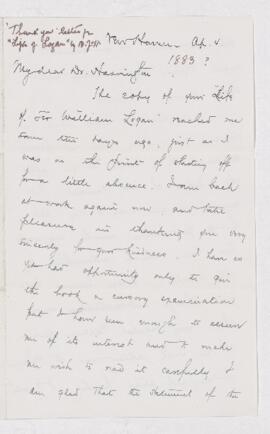 "Thank you" letter for
"Life of Logan" by B.J.H.
New Haven Ap. 4
1883?
My dear Dr. Harrington
The copy of your Life
of Sir William Logan reached me
some ten days ago, just as I
was on the point of starting off
for a little absence. I am back
at work again now and take
pleasure in thanking you very
sincerely for your kindness. I have as
yet had opportunity only to give
the book a cursory examination
but I have seen enough to assure
me of its interest and to make
me wish to read it carefully. I
am glad that the of the